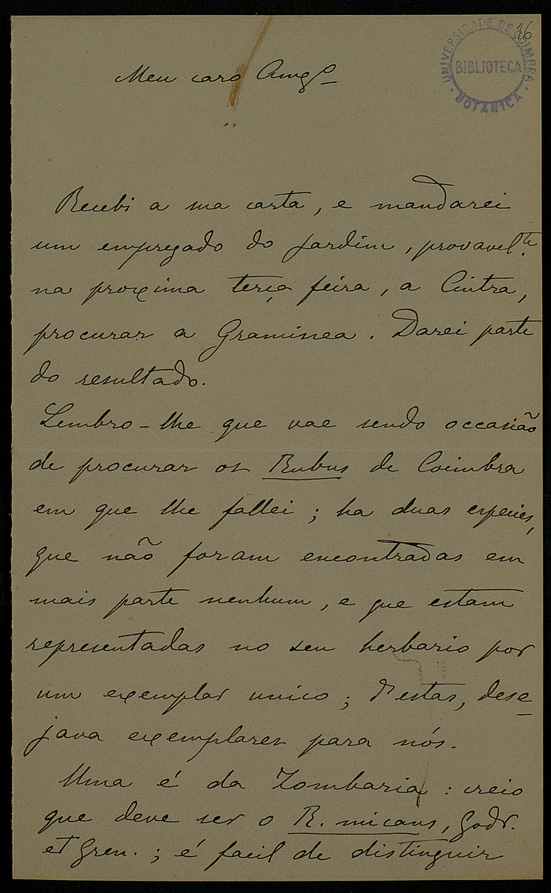 26
UNIVERSIDADE DE COIMBRA
BIBLIOTECA
BOTANICA
Meu caro Amgo
Recebi a sua carta, e mandarei
um empregado do Jardim, provavelte
na proxima terça feira, a Cintra,
procurar a Graminea. Darei parte
do resultado.
Lembro-lhe que vae sendo occasião
de procurar os Rubus de Coimbra
em que lhe fallei; ha duas especies,
que não foram encontradas em
mais parte nenhum, e que estam
representadas no seu herbario por
um exemplar unico; d'estas, dese-
java exemplares para nós.
Uma é da Zombaria: creio
que deve ser o R. micans, Godr.
et Gren.; é facil de distinguir